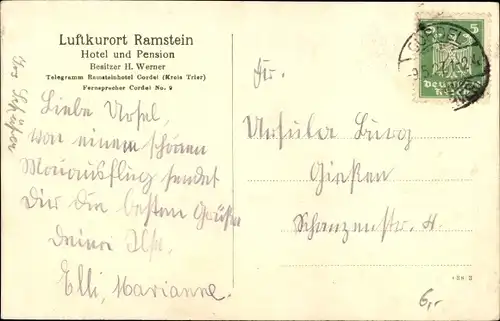 Luftkurort Ramstein
Hotel und Pension
Besitzer H. Werner
Telegramm Ramsteinhotel Cordel (Kreis Trier)
Fernsprecher Cordel No. 9
Liebe Ursel,
von einem schönen
Maiausflug sendet
Dir die besten Grüße
Deine Ilse.
Elli, Marianne.
Frl.
Ursula Burg
Gießen
Schanzenstr.
5
Deutsches
Reich
6,-